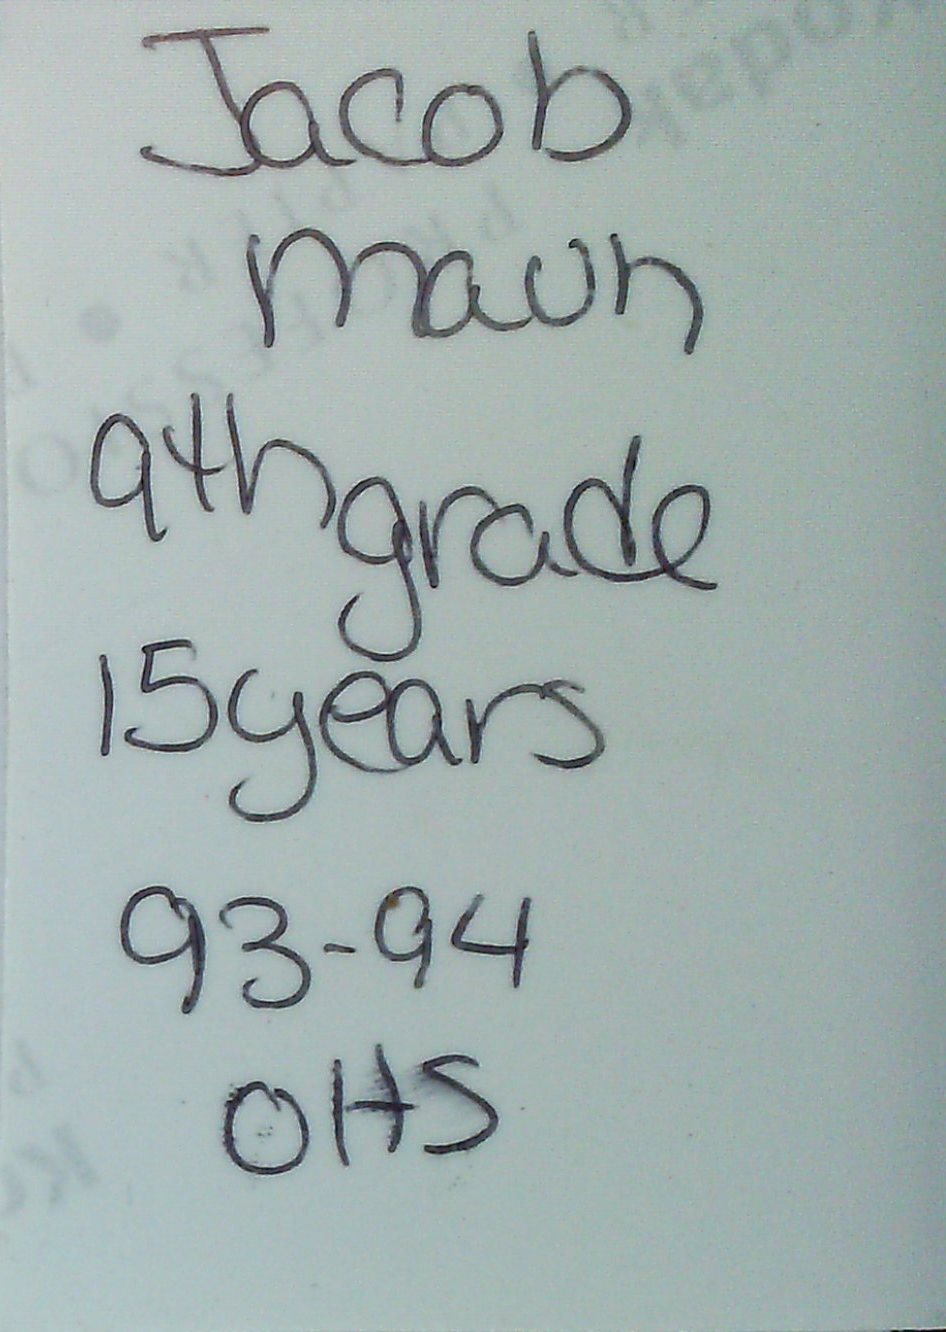 Jacob
Maun
9th grade
15 years
93-94
OHS